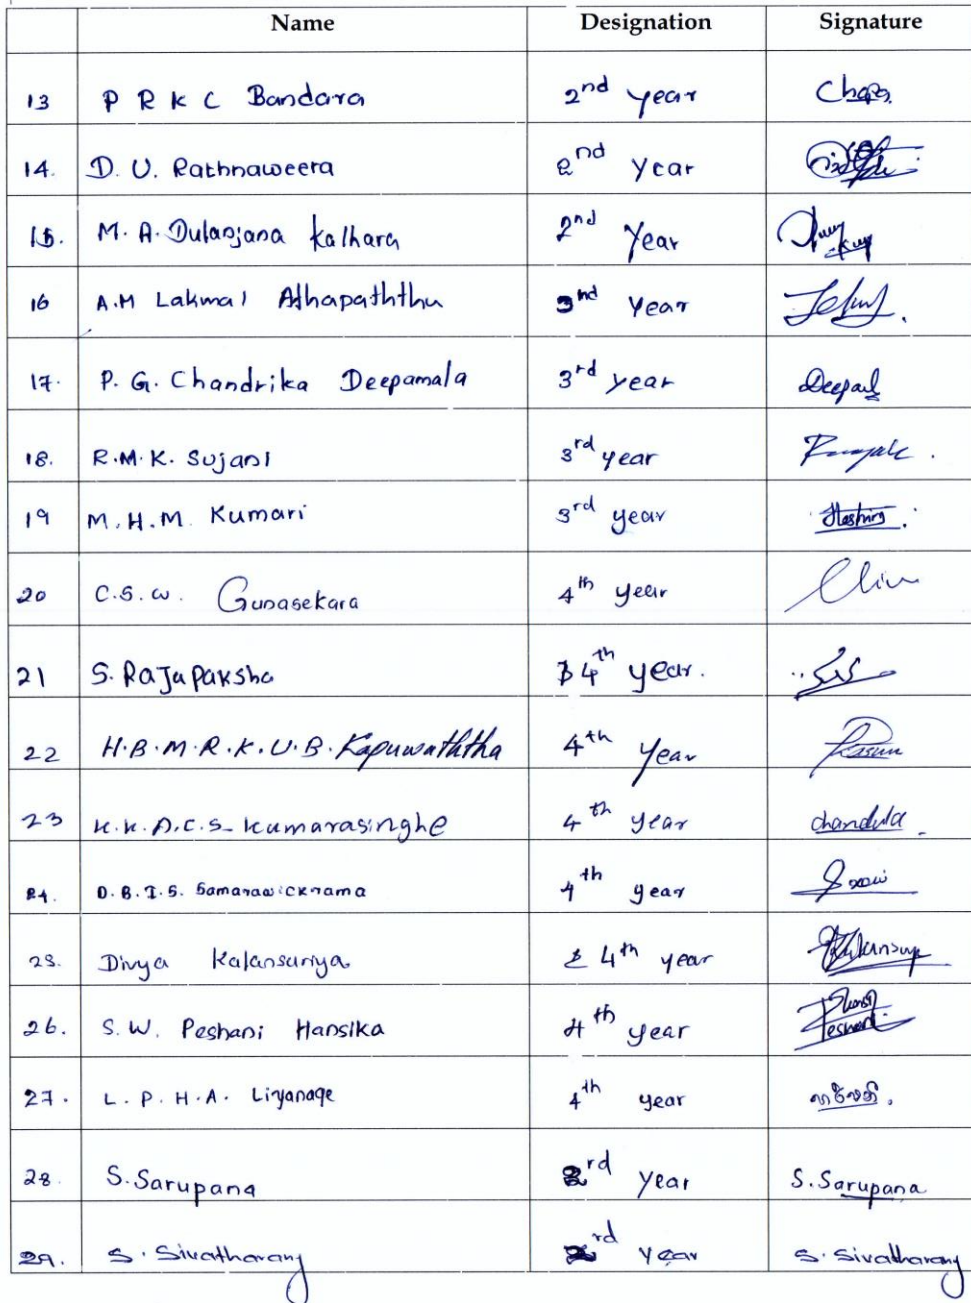 Name Designation Signature
13 P R K C Bandara 2nd year
14. D. U. Rathnaweera 2nd Year
15. M. A. Dulanjana Kalhara 2nd Year
16 A.M Lakmal Athapaththu nd Year
17. P. G. Chandrika Deepamala 3rd year
18. R.M.K. Sujani 3rd year
19 M.H.M. Kumari 3rd year
20 C.S.W. Gunasekara 4th year
21 S. Rajapaksha 4th year.
22 H.B.M.R.K.U.B. Kapuwaththa 4th Year
23 K.K.A.C.S. Kumarasinghe 4th year chandula
24. D.B.I.S. Samarawickrama 4th year
25. Divya Kalansuriya 4th year
26. S. W. Peshani Hansika 4th year
27. L. P. H. A. Liyanage 4th year
28. S. Sarupana rd Year S. Sarupana
29. S. Sivatharany rd Year S. Sivatharany